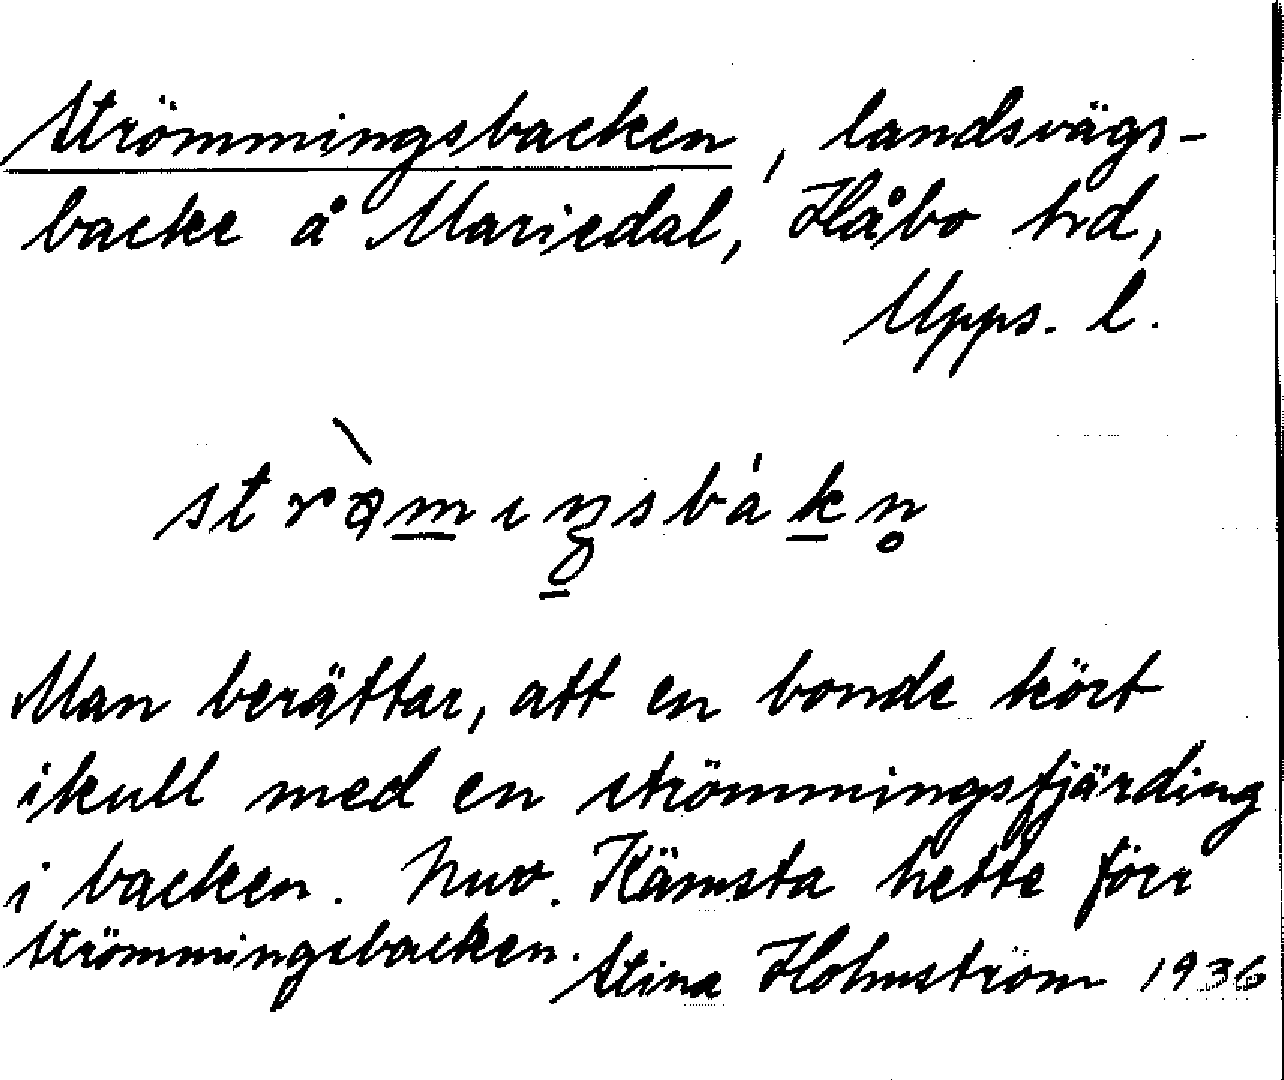 Strömmingsbacken, landsvägs-
backe å Mariedal, Håbo hd,
Upps. l.
Man berättar, att en bonde kört
ikull med en strömmingsfjärding
i backen. Nuv. Kämsta hette förr
Strömmingsbacken.
Stina Holmström 1936